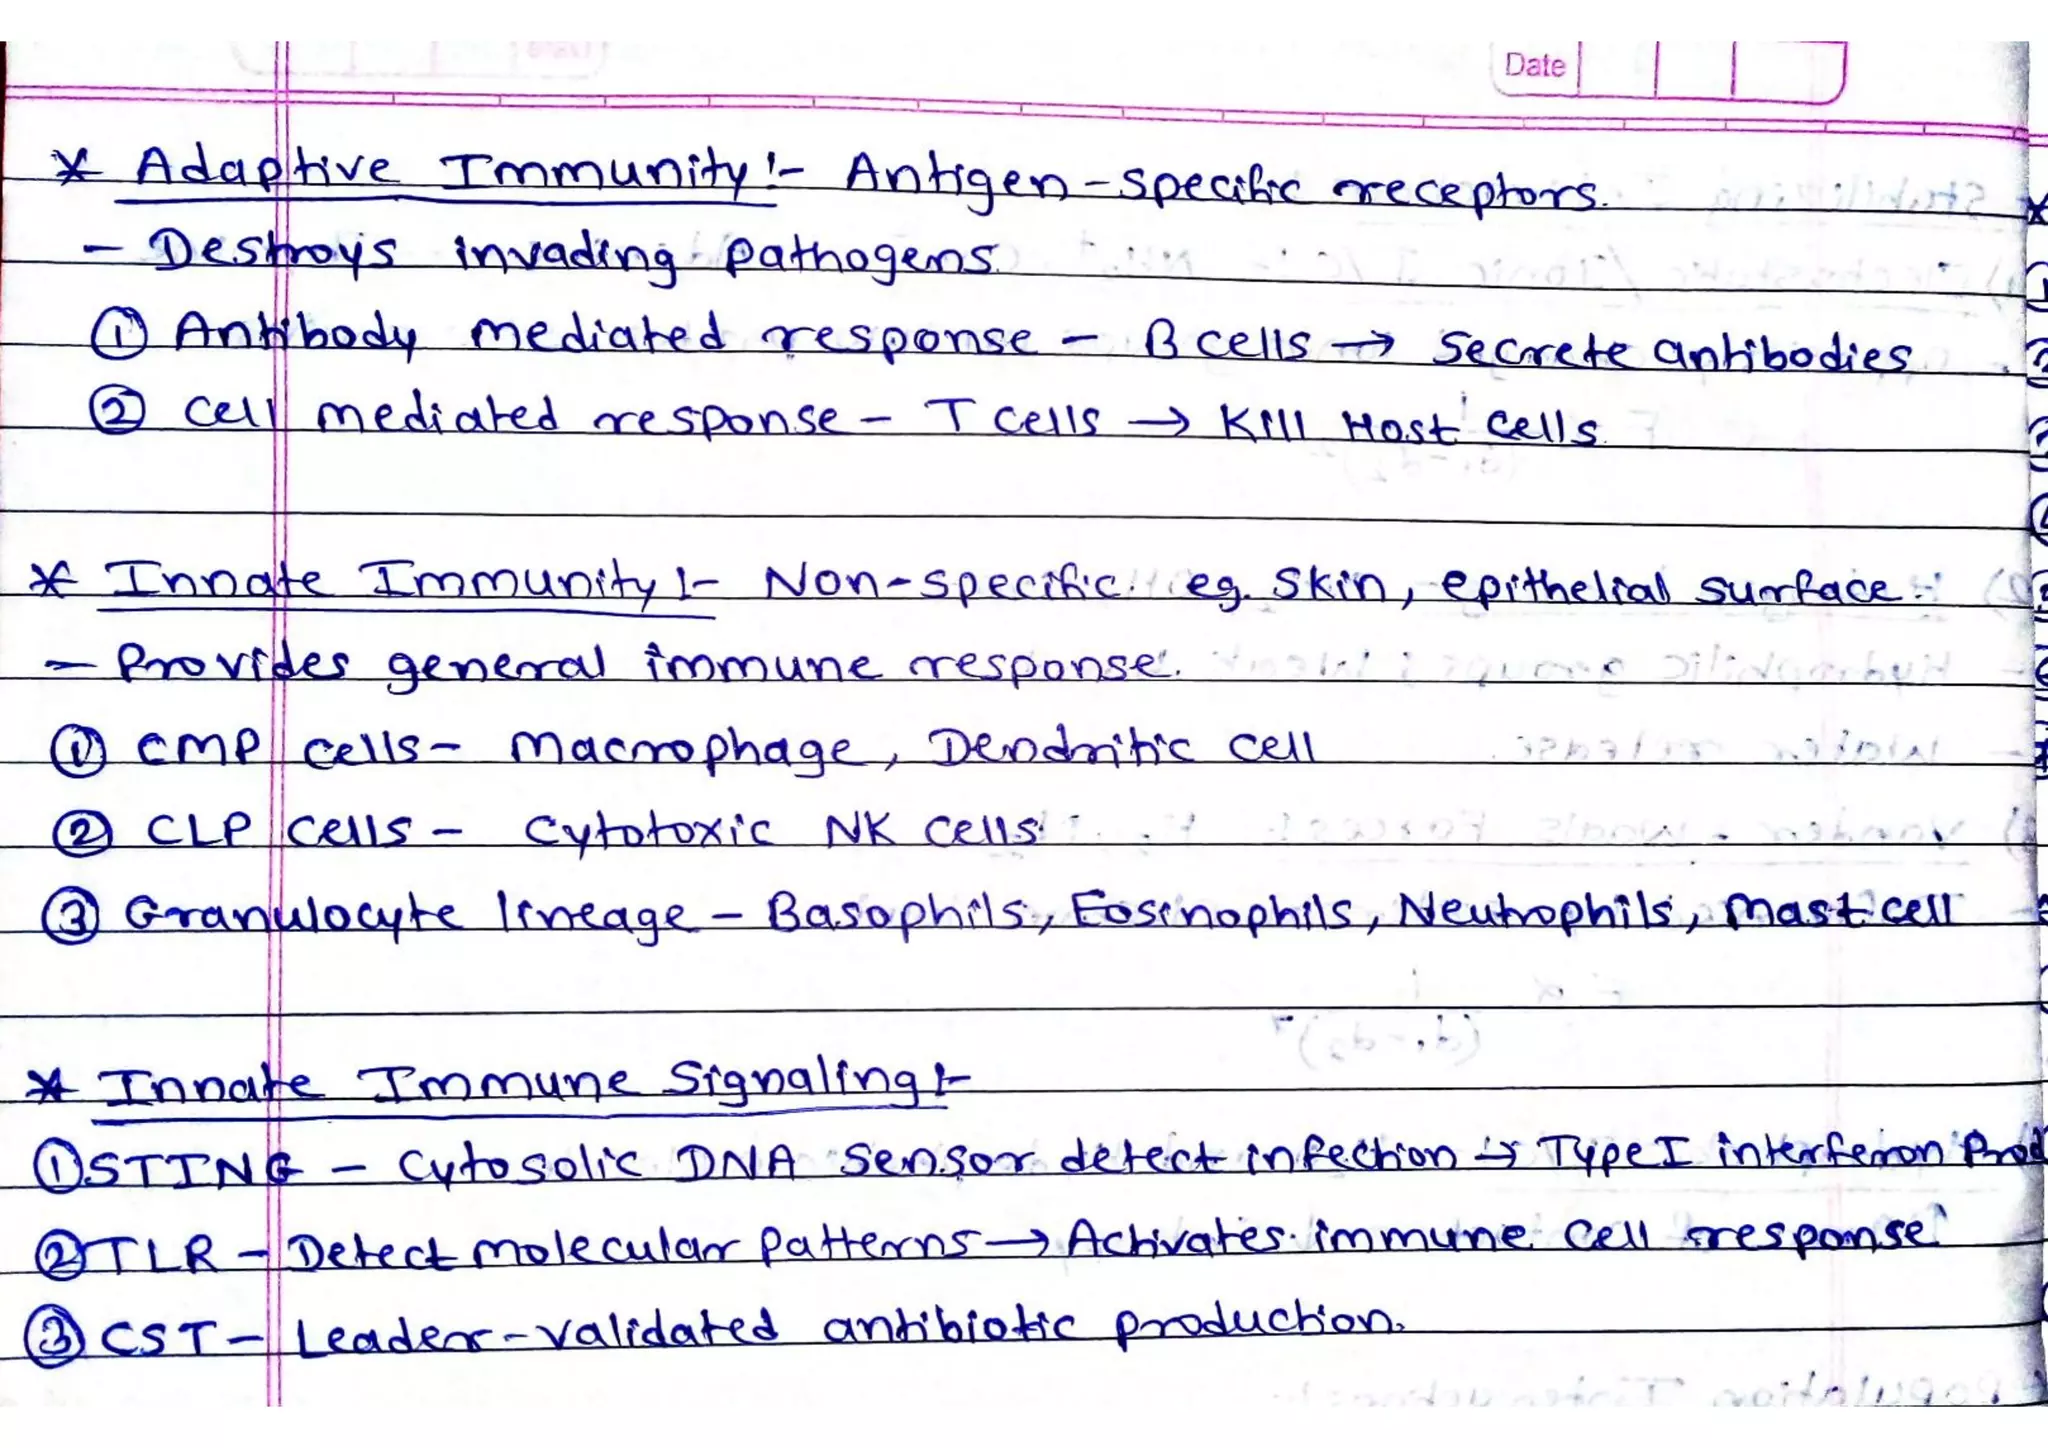 Date
* Adaptive Immunity :- Antigen-specific receptors.
- Destroys invading pathogens.
① Antibody mediated response - B cells → Secrete antibodies
② Cell mediated response - T cells → Kill Host cells.
* Innate Immunity :- Non-specific. eg. Skin, epithelial surface.
- Provides general immune response.
① CMP cells - Macrophage, Dendritic cell
② CLP cells - Cytotoxic NK cells
③ Granulocyte lineage - Basophils, Eosinophils, Neutrophils, Mast cell
* Innate Immune Signaling :-
① STING - Cytosolic DNA sensor detect infection → Type I interferon Prod
② TLR - Detect molecular patterns → Activates immune cell response.
③ CST - Leader-validated antibiotic production.